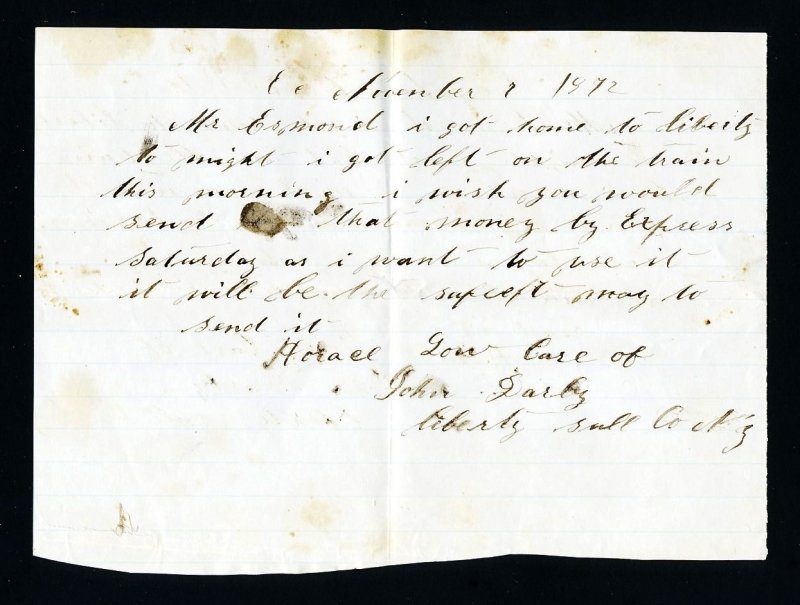 November 7 1872
Mr Esmond i got home to liberty
to night i got left on the train
this morning i wish you would
send that money by Express
Saturday as i want to use it
it will be the sufeest way to
send it
Horace Low Care of
John Darby
liberty sull Co N y